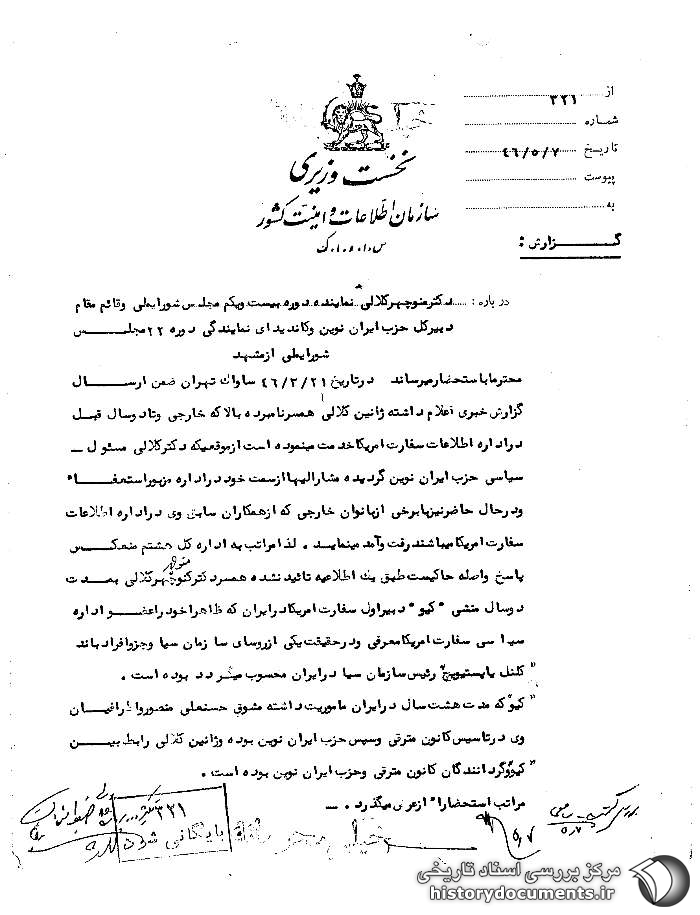 از ۳۲۱
شماره
تاریخ ۴۶/۵/۷
پیوست
به
نخست وزیری
سازمان اطلاعات و امنیت کشور
س.ا.و.ا.ک
گـــزارش :
درباره : دکتر منوچهر کلالی نماینده دوره بیست ویکم مجلس شورایملی وقائم مقام
دبیرکل حزب ایران نوین وکاندیدای نمایندگی دوره ۲۲ مجلس
شورایملی ازمشهد
محترما باستحضار میرساند درتاریخ ۴۶/۳/۲۱ ساواک تهران ضمن ارسال
گزارش خبری اعلام داشته ژانین کلالی همسرنامبرده بالاکه خارجی وتادوسال قبل
دراداره اطلاعات سفارت امریکاخدمت مینموده است ازموقعیکه دکترکلالی مسئول ـ
سیاسی حزب ایران نوین گردیده مشارالیهاازسمت خوددراداره مزبوراستعفا
ودرحال حاضرنیزبابرخی ازبانوان خارجی که ازهمکاران سابق وی دراداره اطلاعات
سفارت امریکامیباشندرفت وآمد مینماید . لذامراتب به اداره کل هشتم منعکس
پاسخ واصله حاکیست طبق یک اطلاعیه تائیدنشده همسردکترمنوچهرکلالی بمدت
دوسال منشی "کیو" دبیراول سفارت امریکادرایران که ظاهراخودراعضو اداره
سیاسی سفارت امریکامعرفی ودرحقیقت یکی ازروسای سازمان سیا وجزوافرادباند
کلنل یاپسیتوویچ" رئیس سازمان سیا درایران محسوب میگردد بوده است .
"کیو" که مدت هشت سال درایران ماموریت داشته مشوق حسنعلی منصورواطرافیان
وی درتاسیس کانون مترقی وسپس حزب ایران نوین بوده وژانین کلالی رابط بین
"کیو" وگردانندگان کانون مترقی وحزب ایران نوین بوده است .
مراتب استحضارا" ازعرض میگذرد . ـ
۵/۷
۵/۷
۳۲۱
بایگانی شود
خیلی محرمانه
مرکز بررسی اسناد تاریخی
historydocuments.ir